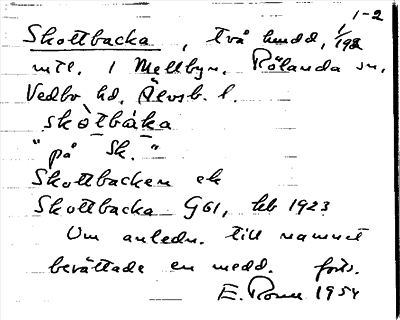 1-2
Skottbacka, två hmdd, 1/192
mtl. i Mellbyn. Rölanda sn,
Vedbo hd, Älvsb. l.
skòtbáka
"på Sk."
Skottbacken ek
Skottbacka G61, hb 1923
Om anledn. till namnet
berättade en medd. forts.
E. 1954